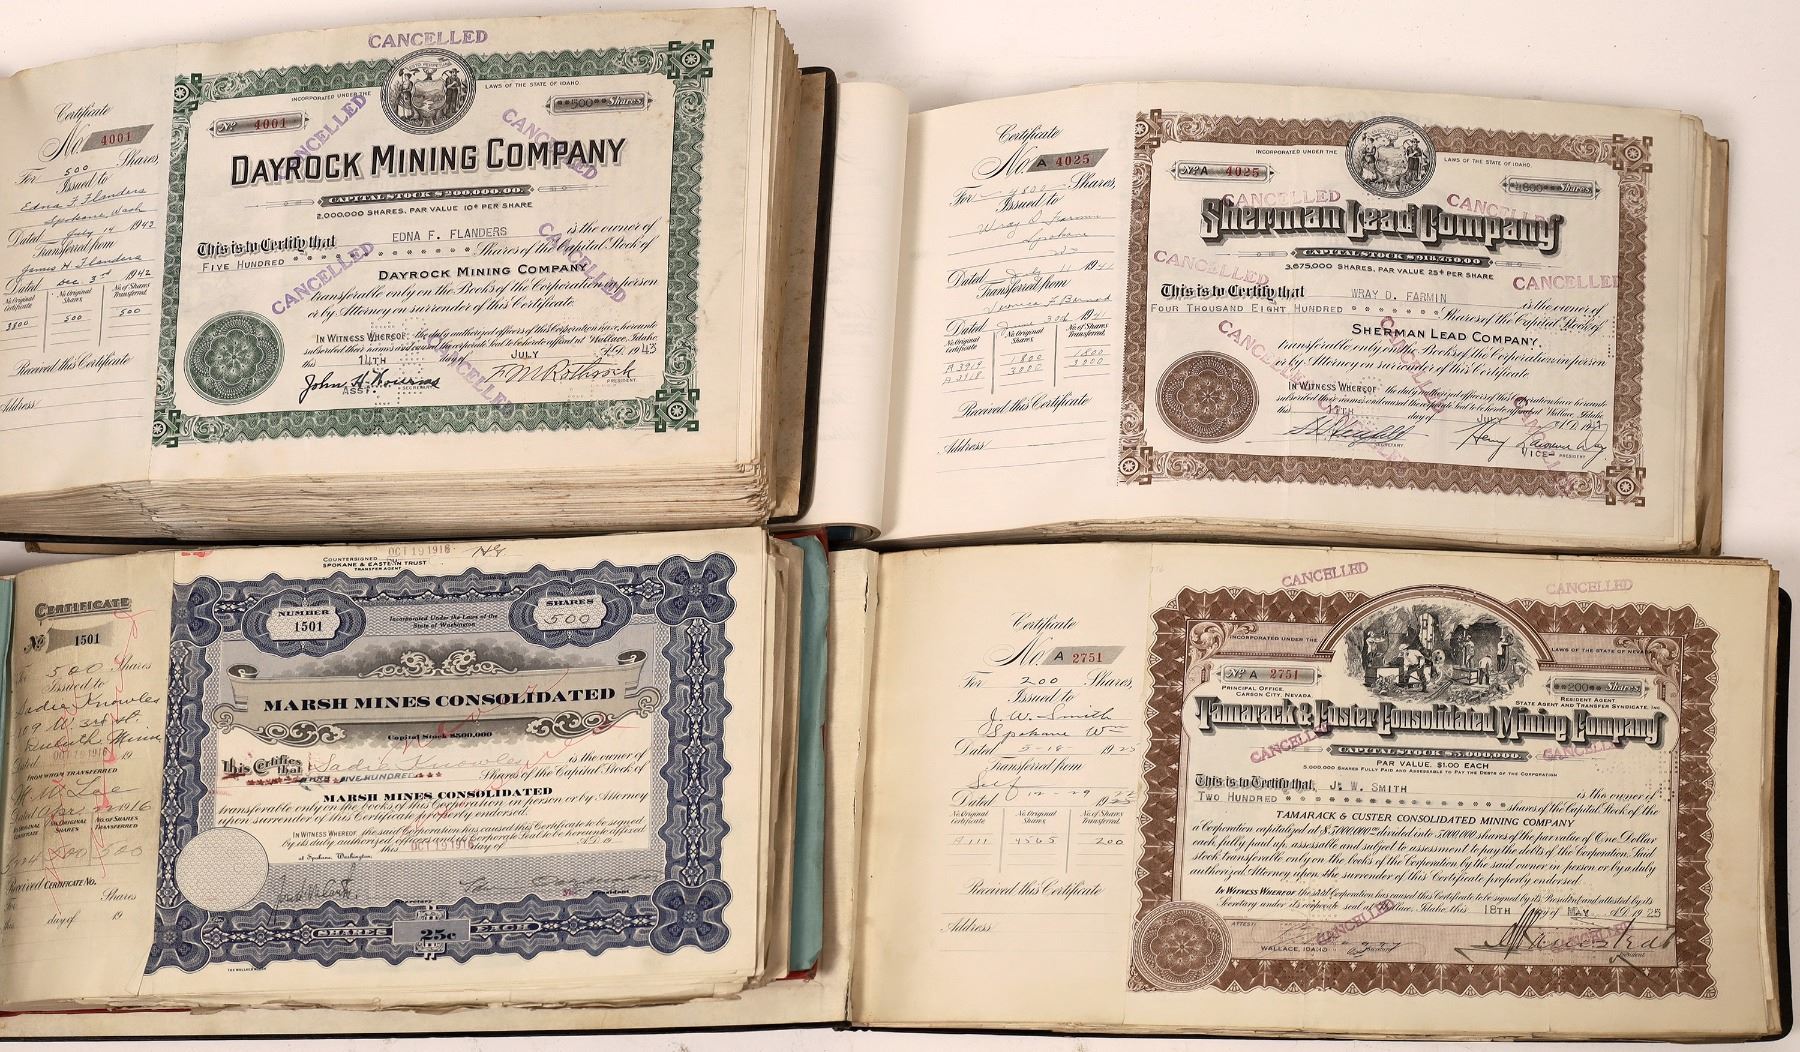 CANCELLED
Certificate
No. 4001
For 500 Shares,
Issued to
Edna F. Flanders
Spokane, Wash
Dated July 14 1943
Transferred from
James H Flanders
Dated Dec. 3rd 1942
No. Original Certificate
No. Original Shares
No. of Shares Transferred
3800 500 500
Received this Certificate
Address
INCORPORATED UNDER THE
LAWS OF THE STATE OF IDAHO
No 4001
**500** Shares
CANCELLED
CANCELLED
DAYROCK MINING COMPANY
CAPITAL STOCK $200,000.00.
2,000,000 SHARES, PAR VALUE 10¢ PER SHARE
This is to Certify that EDNA F. FLANDERS is the owner of
FIVE HUNDRED * * * * * * * * * Shares of the Capital Stock of
DAYROCK MINING COMPANY
transferable only on the Books of the Corporation in person
or by Attorney on surrender of this Certificate
CANCELLED
CANCELLED
IN WITNESS WHEREOF the duly authorized officers of this Corporation have hereunto
subscribed their names and caused the corporate Seal to be hereto affixed at Wallace, Idaho
this 14TH day of JULY A.D. 1943
CANCELLED
ASST. SECRETARY
F. M. Rothrock
PRESIDENT
Certificate
No. A 4025
For 4800 Shares,
Issued to
Wray D. Farmin
Spokane
Dated July 11 1941
Transferred from
Dated June 30th 1941
No. Original Certificate
No. Original Shares
No. of Shares Transferred
A 3919 1800 1800
A 3918 3000 3000
Received this Certificate
Address
INCORPORATED UNDER THE
LAWS OF THE STATE OF IDAHO
No A 4025
*4800** Shares
CANCELLED
CANCELLED
Sherman Lead Company
CAPITAL STOCK $918,750.00
3,675,000 SHARES, PAR VALUE 25¢ PER SHARE
CANCELLED
CANCELLED
This is to Certify that WRAY D. FARMIN is the owner of
FOUR THOUSAND EIGHT HUNDRED * * * * * * * Shares of the Capital Stock of
SHERMAN LEAD COMPANY.
transferable only on the Books of the Corporation in person
or by Attorney on surrender of this Certificate
IN WITNESS WHEREOF the duly authorized officers of this Corporation have hereunto
subscribed their names and caused the corporate Seal to be hereto affixed at Wallace, Idaho,
this day of JULY A.D. 19
SECRETARY
Henry Lawrence Day
VICE- PRESIDENT
CERTIFICATE
No 1501
For 500 Shares
Issued to
Sadie Knowles
Duluth Minn
Dated OCT 19 1916 19
FROM WHOM TRANSFERRED
H. M. Lee
1916
NO. ORIGINAL CERTIFICATE
NO. ORIGINAL SHARES
NO. OF SHARES TRANSFERRED
500 500
Received CERTIFICATE NO.
For Shares
this day of 19
COUNTERSIGNED OCT 19 1916
SPOKANE & EASTERN TRUST
TRANSFER AGENT
NUMBER
1501
Incorporated Under the Laws of the
State of Washington
SHARES
500
MARSH MINES CONSOLIDATED
Capital Stock $500,000
This Certifies that Sadie Knowles is the owner of
FIVE HUNDRED *** Shares of the Capital Stock of
MARSH MINES CONSOLIDATED
transferable only on the books of this Corporation in person or by Attorney
upon surrender of this Certificate properly endorsed.
IN WITNESS WHEREOF, the said Corporation has caused this Certificate to be signed
by its duly authorized officers and its Corporate Seal to be hereunto affixed
this OCT 19 1916 day of A.D. 19
at Spokane, Washington.
Secretary
President
SHARES 25c EACH
Certificate
No. A 2751
For 200 Shares,
Issued to
J. W. Smith
Spokane Wn
Dated 5-18- 1925
Transferred from
Self
Dated 12-29 19
No. Original Certificate
No. Original Shares
No. of Shares Transferred
A 111 4565 200
Received this Certificate
Address
CANCELLED
CANCELLED
INCORPORATED UNDER THE
LAWS OF THE STATE OF NEVADA
No A 2751
**200** Shares
PRINCIPAL OFFICE,
CARSON CITY, NEVADA
RESIDENT AGENT
STATE AGENT AND TRANSFER SYNDICATE, INC
Tamarack & Custer Consolidated Mining Company
CANCELLED
CAPITAL STOCK $5,000,000.
CANCELLED
PAR VALUE, $1.00 EACH
5,000,000 SHARES FULLY PAID AND ASSESSABLE TO PAY THE DEBTS OF THE CORPORATION
This is to Certify that, J. W. SMITH is the owner of
TWO HUNDRED * * * * * * * * * * * * * shares of the Capital Stock of the
TAMARACK & CUSTER CONSOLIDATED MINING COMPANY
a Corporation capitalized at $5,000,000.00 divided into 5,000,000 shares of the par value of One Dollar
each, fully paid up, assessable and subject to assessment to pay the debts of the Corporation. Said
stock transferable only on the books of the Corporation by the said owner in person or by a duly
authorized Attorney upon the surrender of this Certificate properly endorsed.
IN WITNESS WHEREOF the said Corporation has caused this Certificate to be signed by its President and attested by its
Secretary under its corporate seal at Wallace, Idaho, this 18TH day of MAY A.D. 1925
ATTEST:
CANCELLED
CANCELLED
WALLACE, IDAHO
Secretary
President